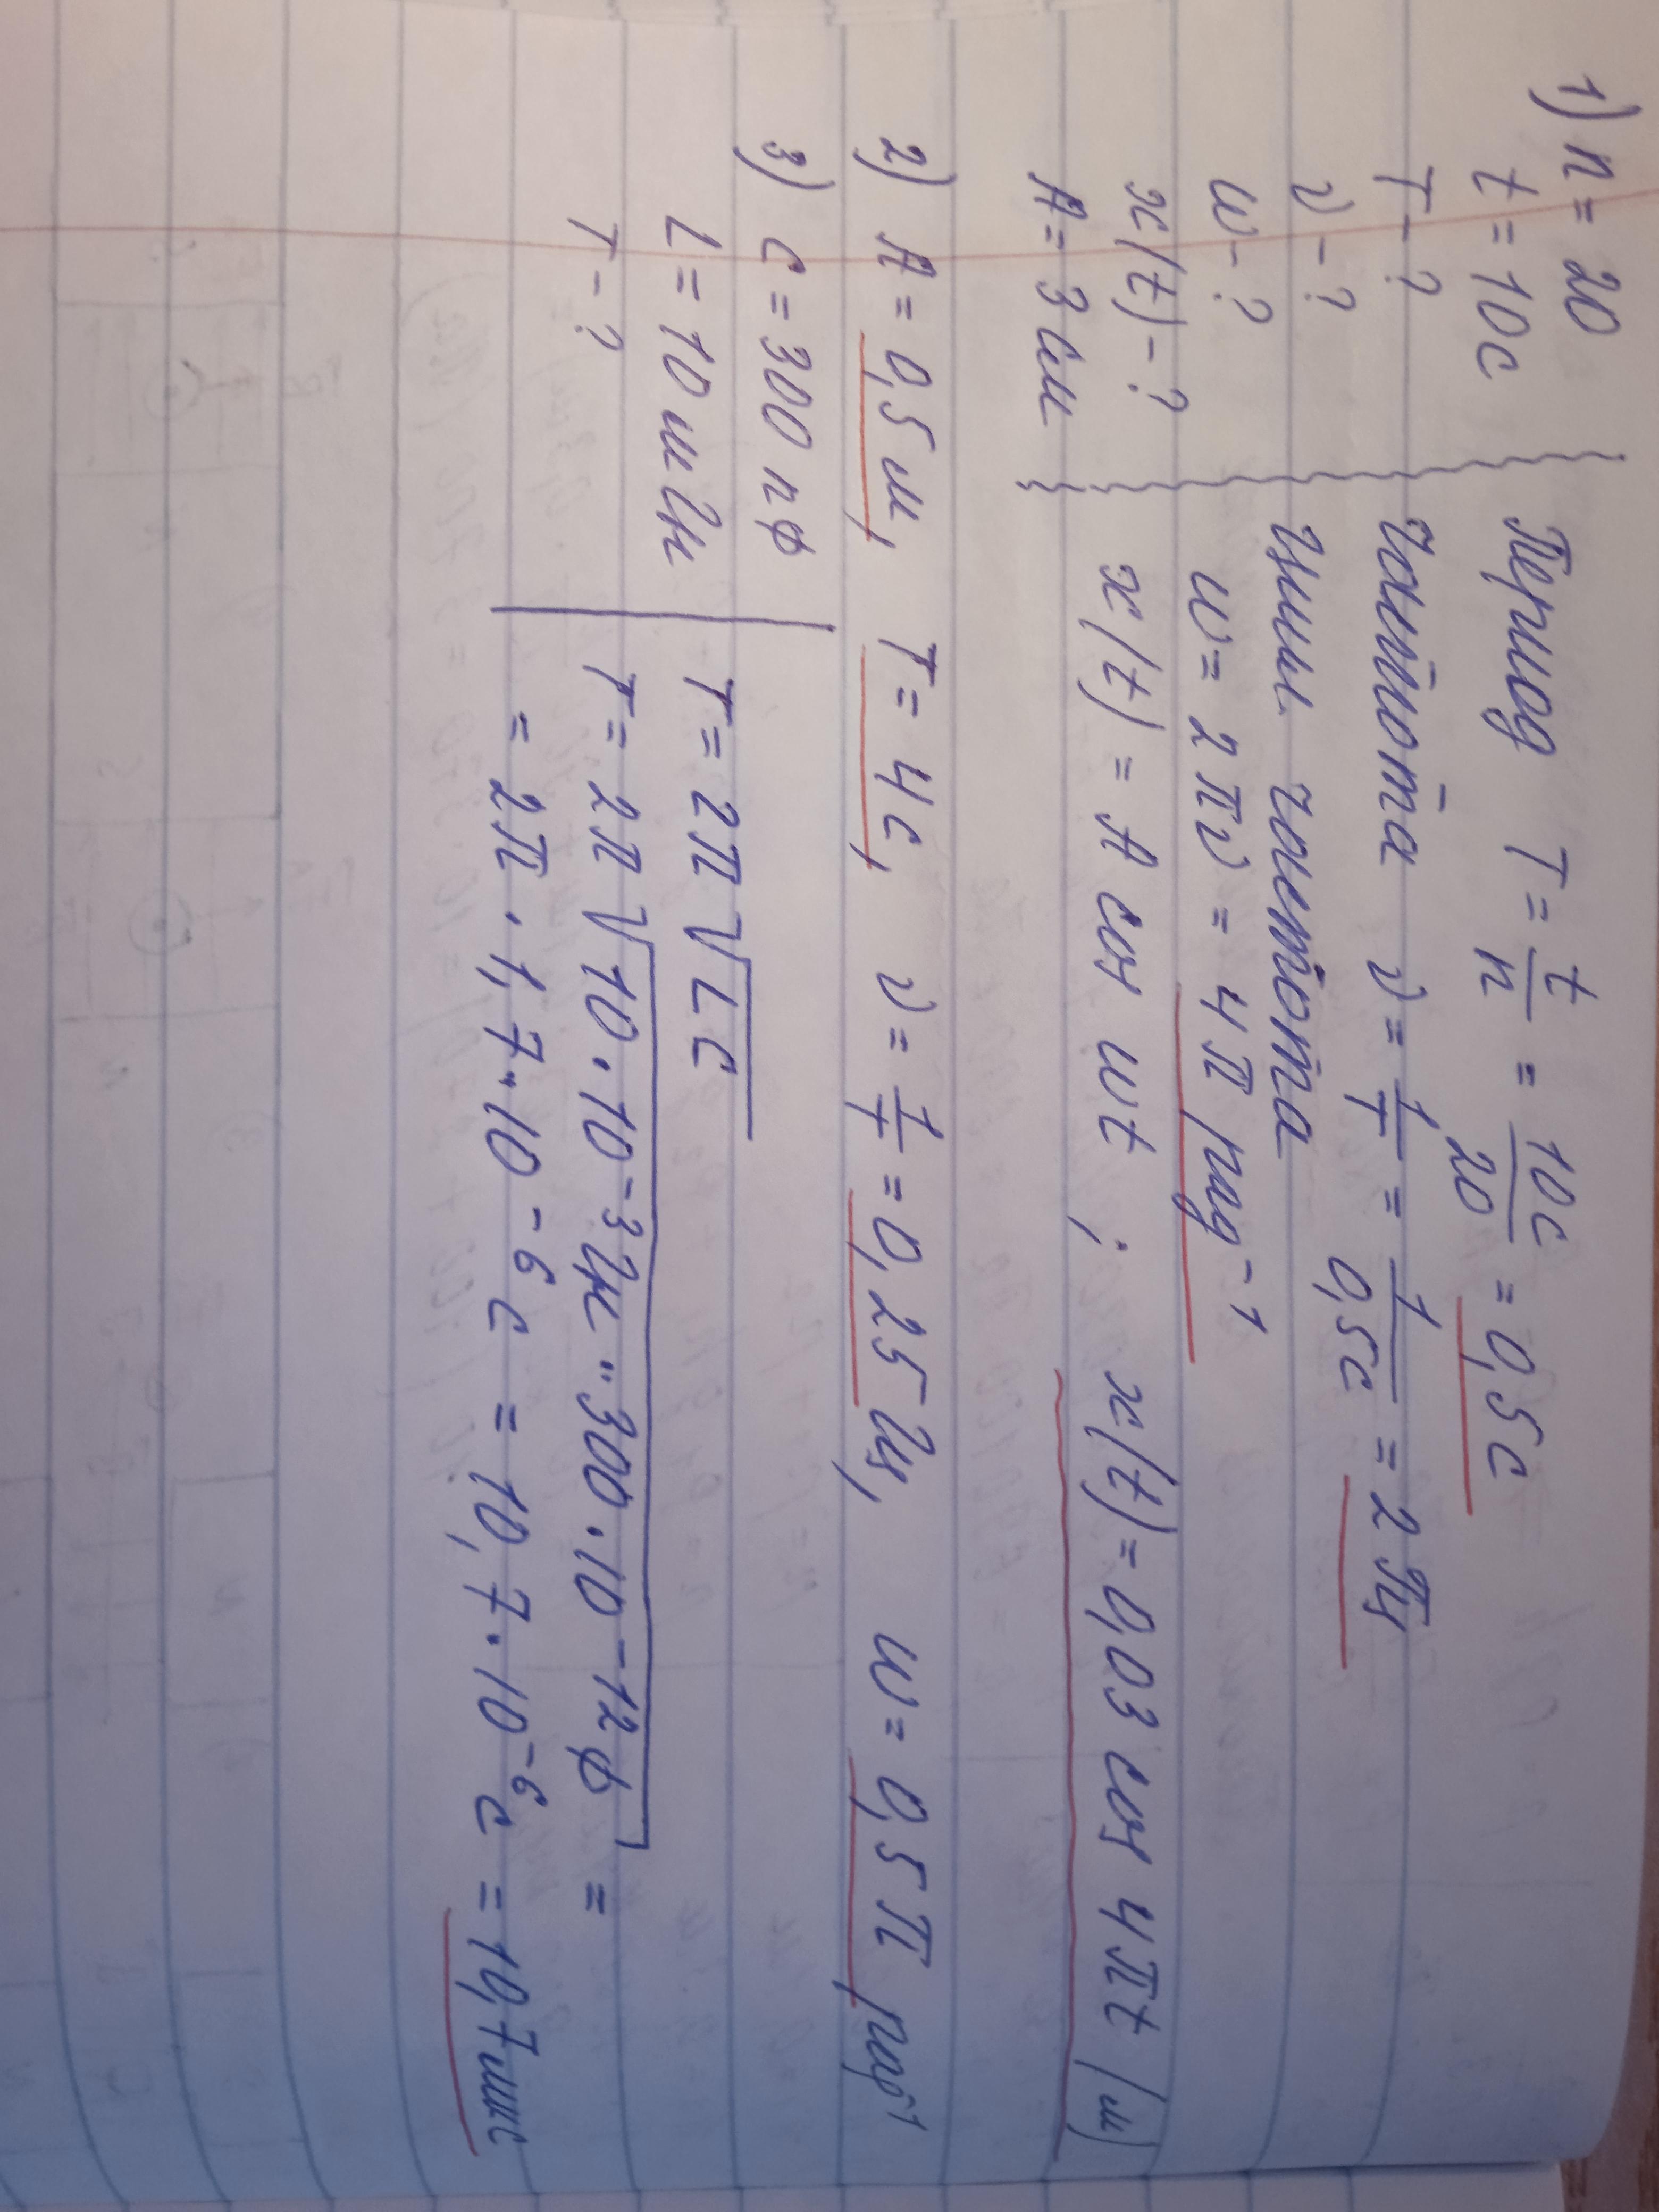 1) n = 20
t = 10c
T - ?
ν - ?
ω - ?
x(t) - ?
A = 3 см
Период T = t/n = 10c/20 = 0,5c
Частота ν = 1/T = 1/0,5c = 2 Гц
Цикл. частота
ω = 2πν = 4π рад⁻¹
x(t) = A cos ωt ; x(t) = 0,03 cos 4πt (м)
2) A = 0,5 м, T = 4c, ν = 1/T = 0,25 Гц, ω = 0,5π рад⁻¹
3) C = 300 пФ
L = 10 мГн
T - ?
T = 2π √LC
T = 2π √10·10⁻³Гн·300·10⁻¹²Ф =
= 2π · 1,7·10⁻⁶ c = 10,7·10⁻⁶ c = 10,7мкс